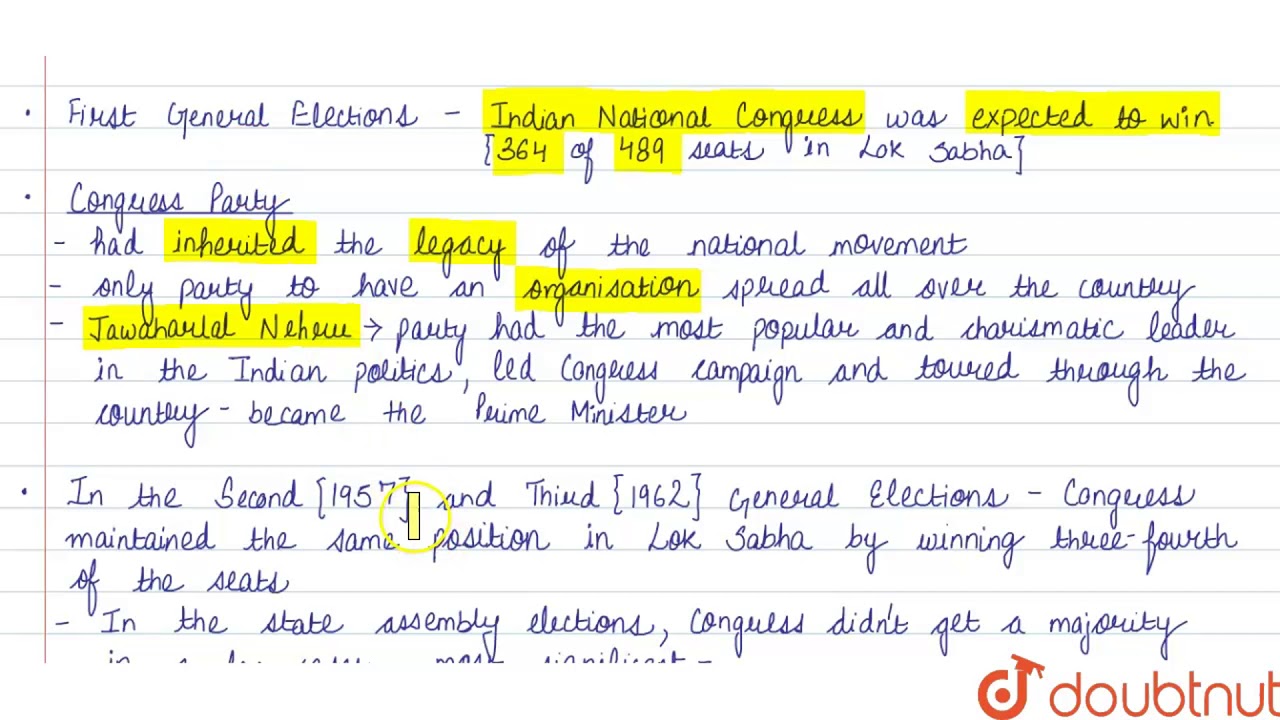 · First General Elections - Indian National Congress was expected to win
[364 of 489 seats in Lok Sabha]
· Congress Party
- had inherited the legacy of the national movement
- only party to have an organisation spread all over the country
- Jawaharlal Nehru → party had the most popular and charismatic leader
in the Indian politics, led Congress campaign and toured through the
country - became the Prime Minister
· In the Second [1957] and Third [1962] General Elections - Congress
maintained the same position in Lok Sabha by winning three-fourth
of the seats
- In the state assembly elections, Congress didn't get a majority
in a few cases, most significant -
doubtnut